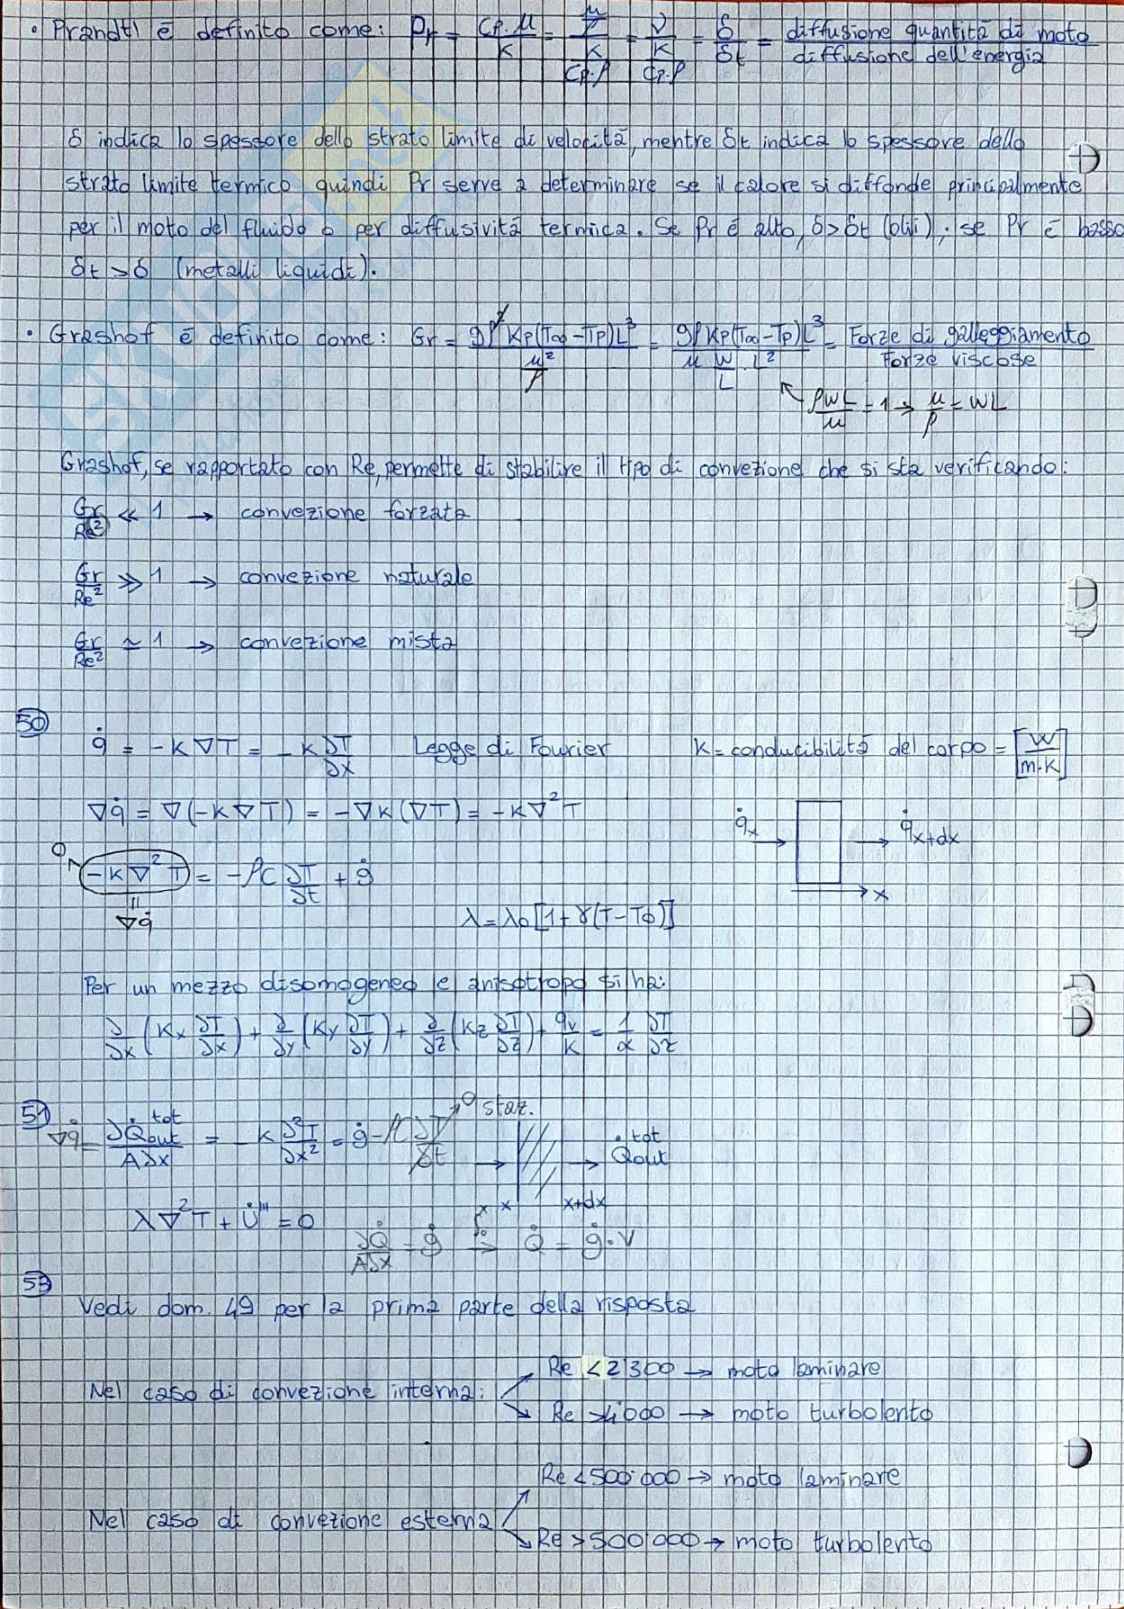 • Prandtl è definito come: Pr = Cp·μ/K = (μ/ρ)/(K/(Cp·ρ)) = ν/(K/(Cp·ρ)) = δ/δt = diffusione quantità di moto/diffusione dell'energia
δ indica lo spessore dello strato limite di velocità, mentre δt indica lo spessore dello
strato limite termico quindi Pr serve a determinare se il calore si diffonde principalmente
per il moto del fluido o per diffusività termica. Se Pr è alto, δ>δt (olii); se Pr è basso
δt>δ (metalli liquidi).
• Grashof è definito come: Gr = gρ²Kp(T∞-Tp)L³/(μ²/ρ) = gρKp(T∞-Tp)L³/(μ W/L · L²) = Forze di galleggiamento/Forze viscose
ρWL/μ = 1 → μ/ρ = WL
Grashof, se rapportato con Re, permette di stabilire il tipo di convezione che si sta verificando:
Gr/Re² ≪ 1 → convezione forzata
Gr/Re² ≫ 1 → convezione naturale
Gr/Re² ≃ 1 → convezione mista
50
q̇ = -K∇T = -K ∂T/∂x Legge di Fourier K = conducibilità del corpo = [W/m·K]
∇q̇ = ∇(-K∇T) = -∇K(∇T) = -K∇²T
q̇x → q̇x+dx
x
0
-K∇²T = -ρC ∂T/∂t + ġ
=
∇q̇
λ=λ0[1+γ(T-T0)]
Per un mezzo disomogeneo e anisotropo si ha:
∂/∂x (Kx ∂T/∂x) + ∂/∂y (Ky ∂T/∂y) + ∂/∂z (Kz ∂T/∂z) + qv/K = 1/α ∂T/∂τ
51
∇q̇ = ∂Q̇out tot/A∂x = -K ∂²T/∂x² = ġ - ρC ∂T/∂t → 0 staz.
→ → Q̇out tot
x x+dx
λ∇²T + U̇''' = 0
∂Q̇/A∂x = ġ ∫0 x → Q̇ = ġ·V
53
Vedi dom. 49 per la prima parte della risposta
Nel caso di convezione interna:
Re < 2'300 → moto laminare
Re > 4'000 → moto turbolento
Nel caso di convezione esterna
Re < 500'000 → moto laminare
Re > 500'000 → moto turbolento